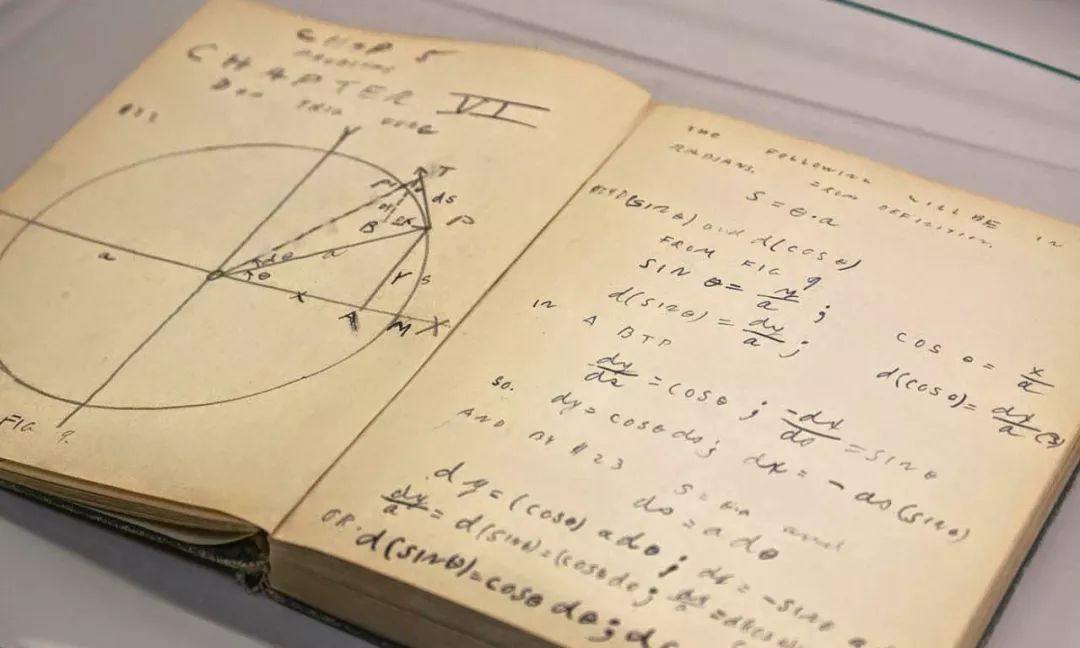 CHAP 5
PROBLEMS
CHAPTER VI
Y
T
P
ds
B
P
dθ
θ
a
a
Y
S
x
A
M
X
FIG 9.
THE FOLLOWING WILL BE IN
RADIANS. FROM DEFINITION,
S = θ·a
d(SIN θ) and d(COS θ)
FROM FIG 9
SIN θ = y/a ; COS θ = x/a
d(SIN θ) = dy/a ; d(COS θ) = dx/a
IN Δ BTP
dy/ds = COS θ ; -dx/ds = SIN θ
SO. dy = COS θ ds ; dx = - ds (SIN θ)
AND BY #23 S = θ·a and
ds = a dθ
dy = (COS θ) a dθ ; dx = - SIN θ a
dy/a = d(SIN θ) = (COS θ dθ ; dx/a = d(COS
OR d(SIN θ) = COS θ dθ ; d(